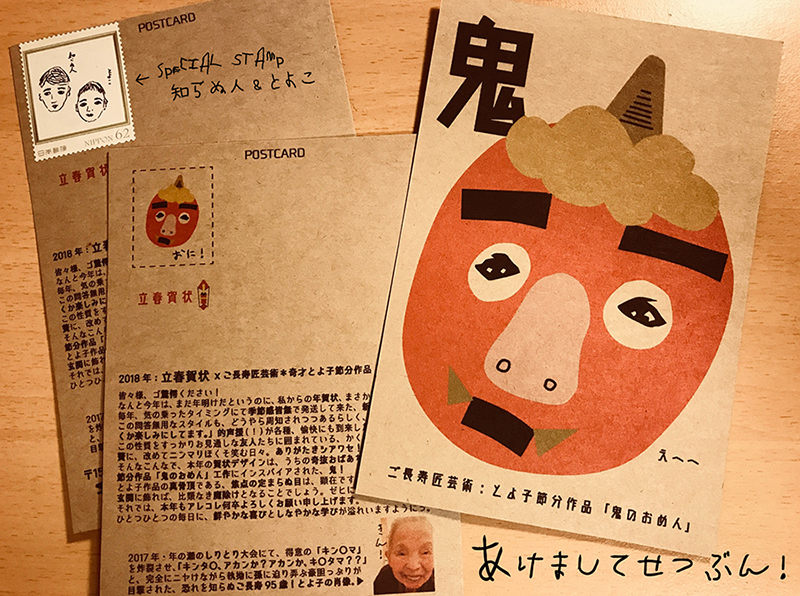 POSTCARD
← SPECIAL STAMP
知ぢめ人 & とよこ
日本郵便 NIPPON 62
立春賀状
2018年：立春
皆々様、ゴ驚愕
なんと今年は、
毎年、気の乗っ
この問答無用
くか楽しみに
この性質をす
賛に、改め
そんなこんな
節分作品「
とよ子作品
玄関に飾れ
それでは、
ひとつひと
2017
POSTCARD
おに！
立春賀状
2018年：立春賀状 x ご長寿匠芸術＊奇才とよ子節分作品
皆々様、ゴ驚愕ください！
なんと今年は、まだ年明けだというのに、私からの年賀状、まさか
毎年、気の乗ったタイミングにて季節感皆無で発送して来た、
この問答無用なスタイルも、どうやら周知されつつあるらしく、
くか楽しみにしてます。」的声援(！)が各種、愉快にも到来し
この性質をすっかりお見通しな友人たちに囲まれている、かく
賛に、改めてニンマリほくそ笑む日々。ありがたきシアワセ！
そんなこんなで、本年の賀状デザインは、うちの奇抜おばあ
節分作品「鬼のおめん」工作にインスパイアされた、鬼！
とよ子作品の真骨頂である、焦点の定まらぬ目は、顕在です
玄関に飾れば、比類なき魔除けとなることでしょう。ゼヒに
それでは、本年もアレコレ何卒よろしくお願い申し上げます。
ひとつひとつの毎日に、鮮やかな喜びとしなやかな学びが溢れいますように♡。
2017年・年の瀬のしりとり大会にて、得意の「キン〇マ」
を炸裂させ、「キンタ〇、アカンか？アカンか、キ〇タマ？？」
と、完全にニヤけながら執拗に孫に迫り弄ぶ豪胆っぷりが
目撃された、恐れを知らぬご長寿95歳！とよ子の肖像。▶
鬼
えへへ
ご長寿匠芸術：とよ子節分作品「鬼のおめん」
あけましてせつぶん！